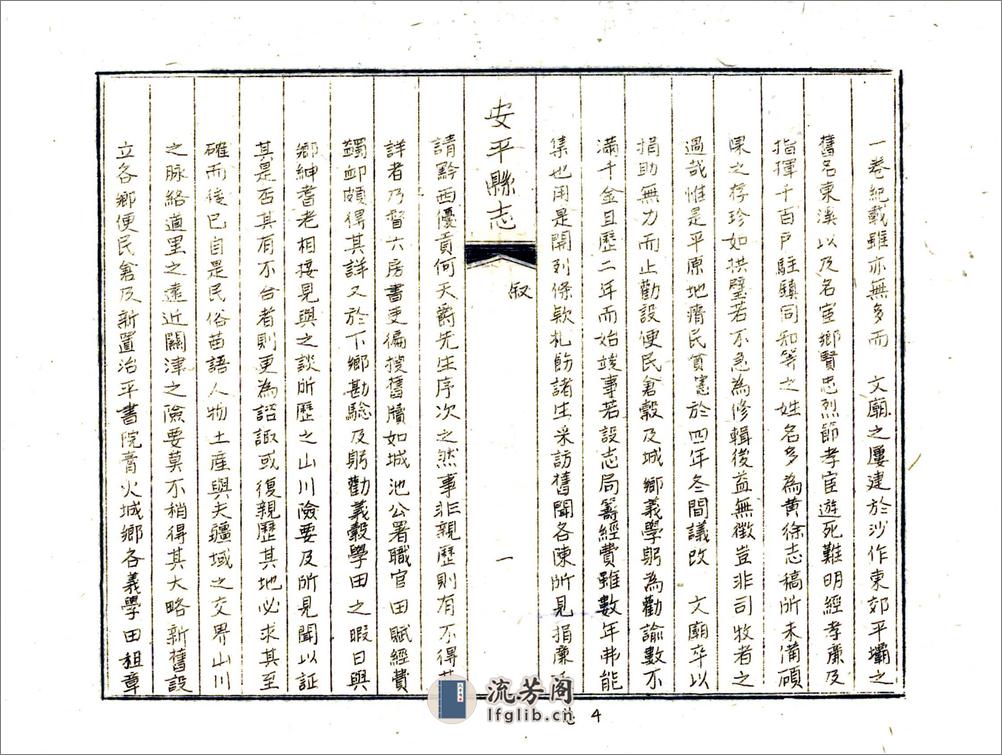 一卷紀載雖亦無多而　文廟之屢建於沙作東郊平壩之
舊名東溪以及名宦鄉賢忠烈節孝宦遊死難明經孝廉及
指揮千百戶駐鎮同知等之姓名多為黃徐志稿所未備碩
果之存珍如拱璧若不急為修輯後益無徵豈非司牧者之
過哉惟是平原地瘠民貧憲於四年冬間議改　文廟卒以
捐助無力而止勸設便民倉穀及城鄉義學躬為勸諭數不
滿千金且歷二年而始竣事若設志局籌經費雖數年弗能
集也用是開列條欵札飭諸生采訪舊聞各陳所見捐廉
安平縣志
敘
一
請黔西優貢何天爵先生序次之然事非親歷則有不得其
詳者乃督六房書吏徧搜舊牘如城池公署職官田賦經費
蠲卹頗得其詳又於下鄉勘驗及躬勸義穀學田之暇日與
鄉紳耆老相接見與之談所歷之山川險要及所見聞以証
其是否其有不合者則更為諮諏或復親歷其地必求其至
確而後已自是民俗苗語人物土產與夫疆域之交界山川
之脈絡道里之遠近關津之險要莫不稍得其大略新舊設
立各鄉便民倉及新置治平書院膏火城鄉各義學田租章
流芳阁
lfglib.cn
4